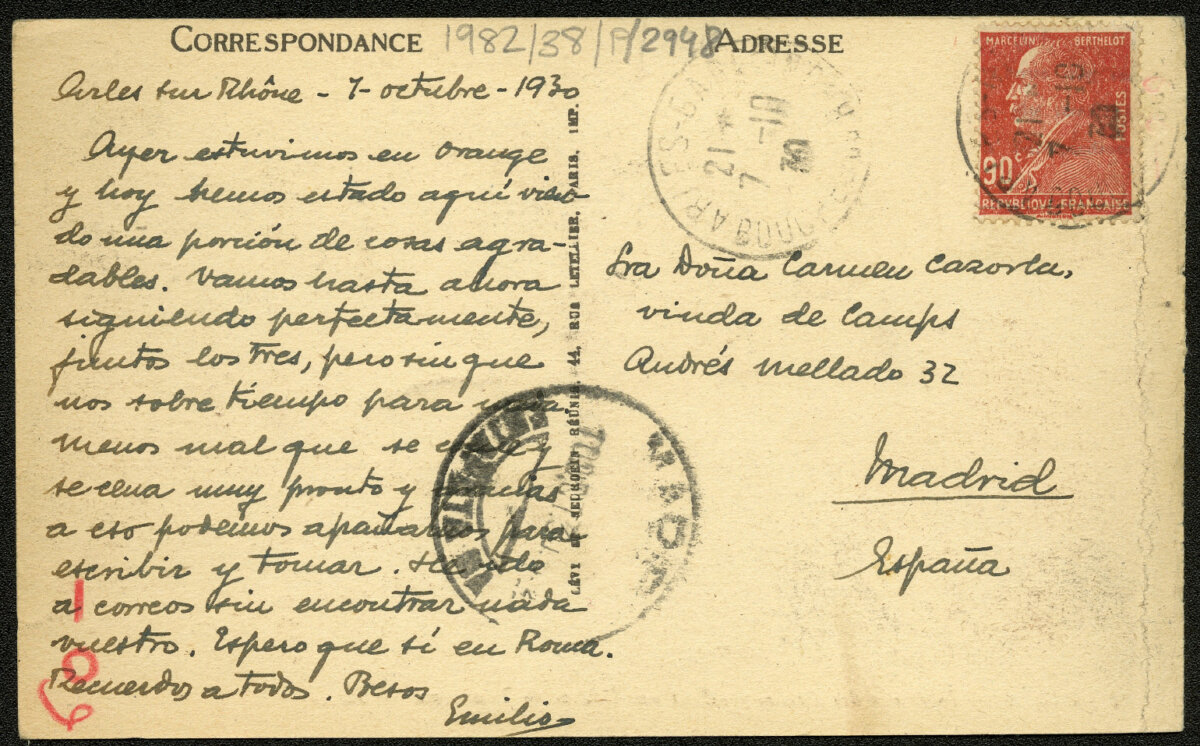 CORRESPONDANCE
1982/38/P/2948
ADRESSE
Arles sur Rhône - 7-octubre-1930
Ayer estuvimos en Orange
y hoy hemos estado aquí vien-
do una porción de cosas agra-
dables. Vamos hasta ahora
siguiendo perfectamente,
juntos los tres, pero sin que
nos sobre tiempo para nada
menos mal que se come y
se cena muy pronto y gracias
a eso podemos apañarnos para
escribir y tomar. He ido
a correos sin encontrar nada
vuestro. Espero que sí en Roma.
Recuerdos a todos. Besos
Emilio
LÉVI ET NEURDEIN RÉUNIS, 44, RUE LETELLIER, PARIS. IMP.
21 *
7 -10
30
MARCELIN BERTHELOT
90c
POSTES
REPUBLIQUE FRANÇAISE
21
7 -10
30
Sra Doña Carmen Cazorla,
viuda de Camps
Andrés Mellado 32
Madrid
España